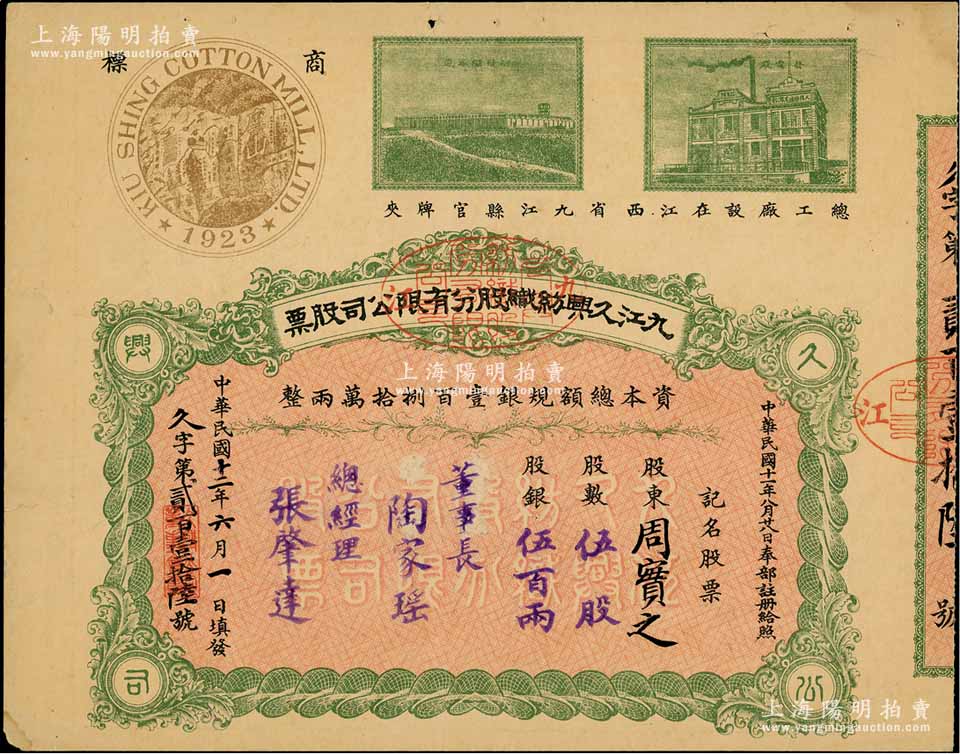 上海陽明拍賣
www.yangmingauction.com
上海陽明拍賣
www.yangmingauction.com
商標
KIU SHING COTTON MILL, LTD
★ 1923 ★
總工廠設在江西省九江縣官牌夾
九江久興紡織股分有限公司股票
久
興
公
司
上海陽明拍賣
www.yangmingauction.com
資本總額規銀壹百捌拾萬兩整
中華民國十一年八月廿八日奉部註册給照
記名股票
股東 周實之
股數 伍股
股銀 伍百兩
董事長 陶家瑶
總經理 張肇達
中華民國十二年六月一日填發
久字第貳百壹拾陸號
久字第貳百壹拾陸號
江
上海陽明拍賣
www.yangmingauction.com